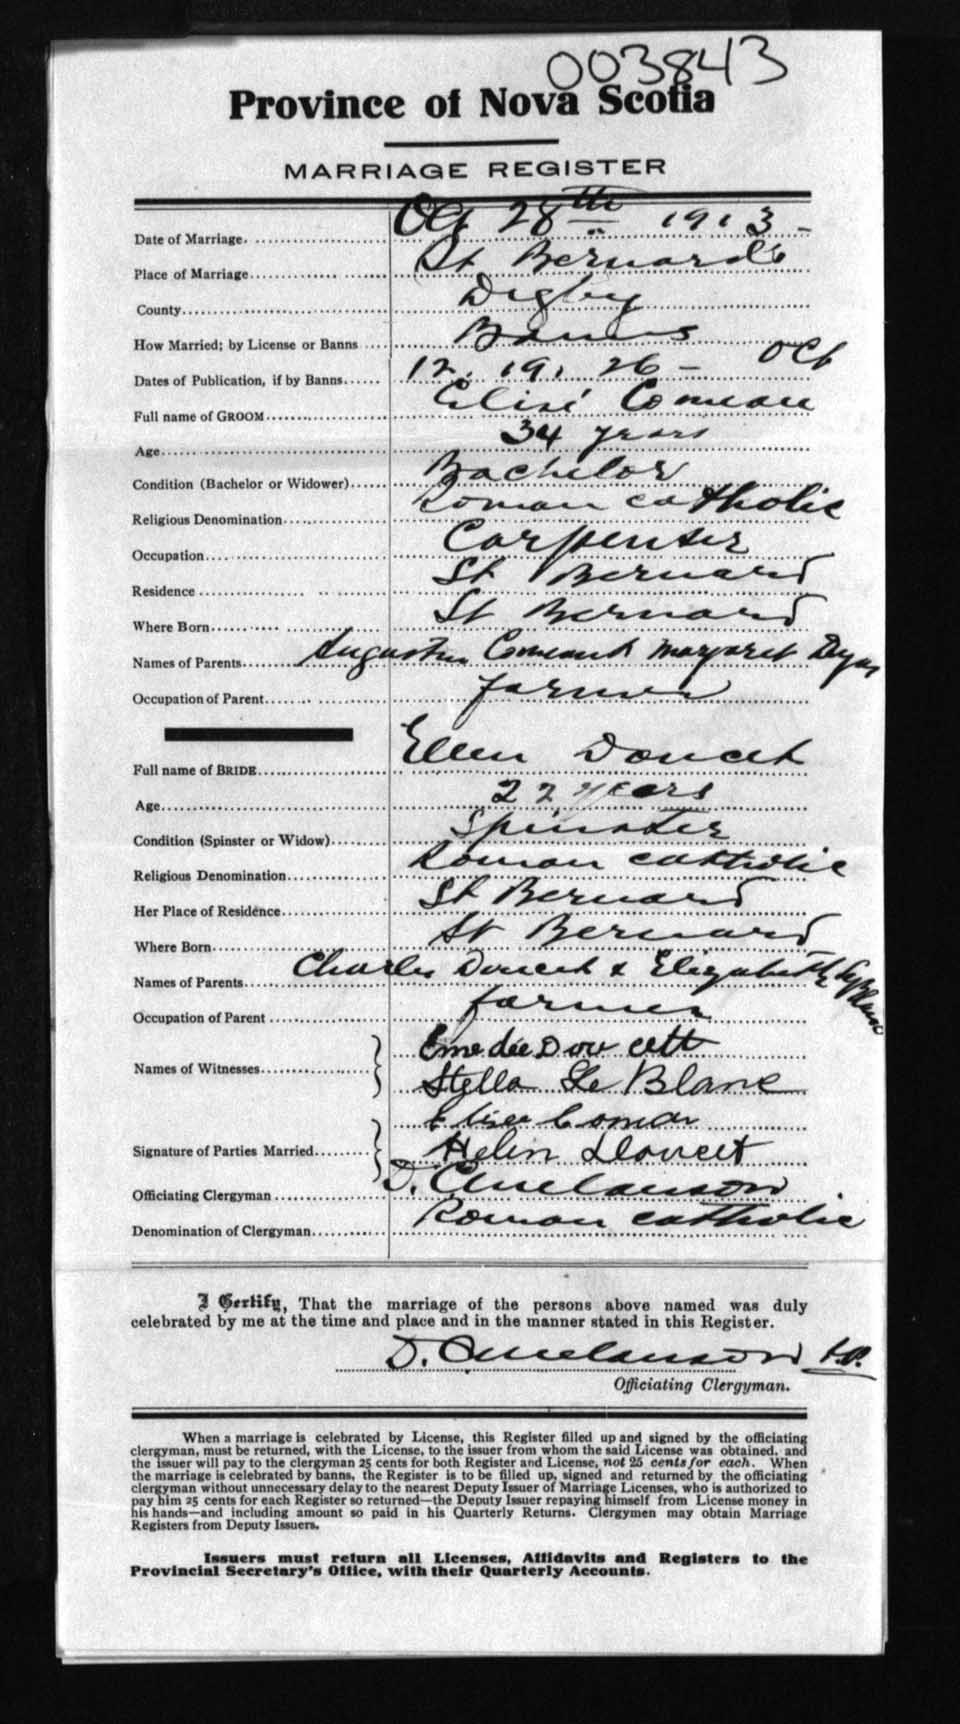 003843
Province of Nova Scotia
MARRIAGE REGISTER
Date of Marriage. Oct 28th 1913 -
Place of Marriage St Bernard
County Digby
How Married; by License or Banns Banns
Dates of Publication, if by Banns 12. 19. 26 - Oct
Full name of GROOM Elisé Comeau
Age 34 years
Condition (Bachelor or Widower) Bachelor
Religious Denomination Roman catholic
Occupation Carpenter
Residence St Bernard
Where Born St Bernard
Names of Parents Comeau & Margaret
Occupation of Parent farmer
Full name of BRIDE Ellen Doucet
Age 22 years
Condition (Spinster or Widow) Spinster
Religious Denomination Roman catholic
Her Place of Residence St Bernard
Where Born St Bernard
Names of Parents Charles Doucet & Elizabeth
Occupation of Parent farmer
Names of Witnesses Emedée Doucett
Stella Le Blanc
Signature of Parties Married
Helen Doucet
Officiating Clergyman D. Melanson
Denomination of Clergyman Roman catholic
I Certify, That the marriage of the persons above named was duly
celebrated by me at the time and place and in the manner stated in this Register.
D. Melanson P.P.
Officiating Clergyman.
When a marriage is celebrated by License, this Register filled up and signed by the officiating
clergyman, must be returned, with the License, to the issuer from whom the said License was obtained, and
the issuer will pay to the clergyman 25 cents for both Register and License, not 25 cents for each. When
the marriage is celebrated by banns, the Register is to be filled up, signed and returned by the officiating
clergyman without unnecessary delay to the nearest Deputy Issuer of Marriage Licenses, who is authorized to
pay him 25 cents for each Register so returned—the Deputy Issuer repaying himself from License money in
his hands—and including amount so paid in his Quarterly Returns. Clergymen may obtain Marriage
Registers from Deputy Issuers.
Issuers must return all Licenses, Affidavits and Registers to the
Provincial Secretary's Office, with their Quarterly Accounts.